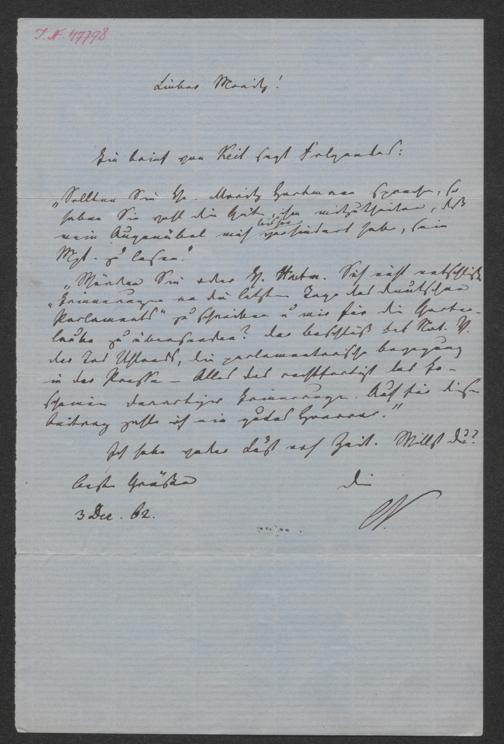 I.N. 47798
Lieber Moritz!
Ein Brief von Keil sagt Folgendes:
„Sollten Sie H. Moritz Hartmann sprechen, so
haben Sie wohl die Güte, ihm mitzutheilen, daß
mein Augenübel mich bisher verhindert habe, sein
Mpt. zu lesen."
„Würden Sie oder H. Hartm. Sich nicht entschließen
„Erinnerungen an die letzten Tage des deutschen
Parlaments" zu schreiben u mir für die Garten-
laube zu übersenden? Der Beschluß des Nat. V.
der Tod Uhlands, die parlamentarische Bewegung
in der Presse – Alles das rechtfertigt das Er-
scheinen derartiger Erinnerungen. Auch für diesen
Beitrag zahle ich ein gutes Honorar."
Ich habe weder Lust noch Zeit. Willst Du?
Beste Grüße
Dein
3 Dec. 62.